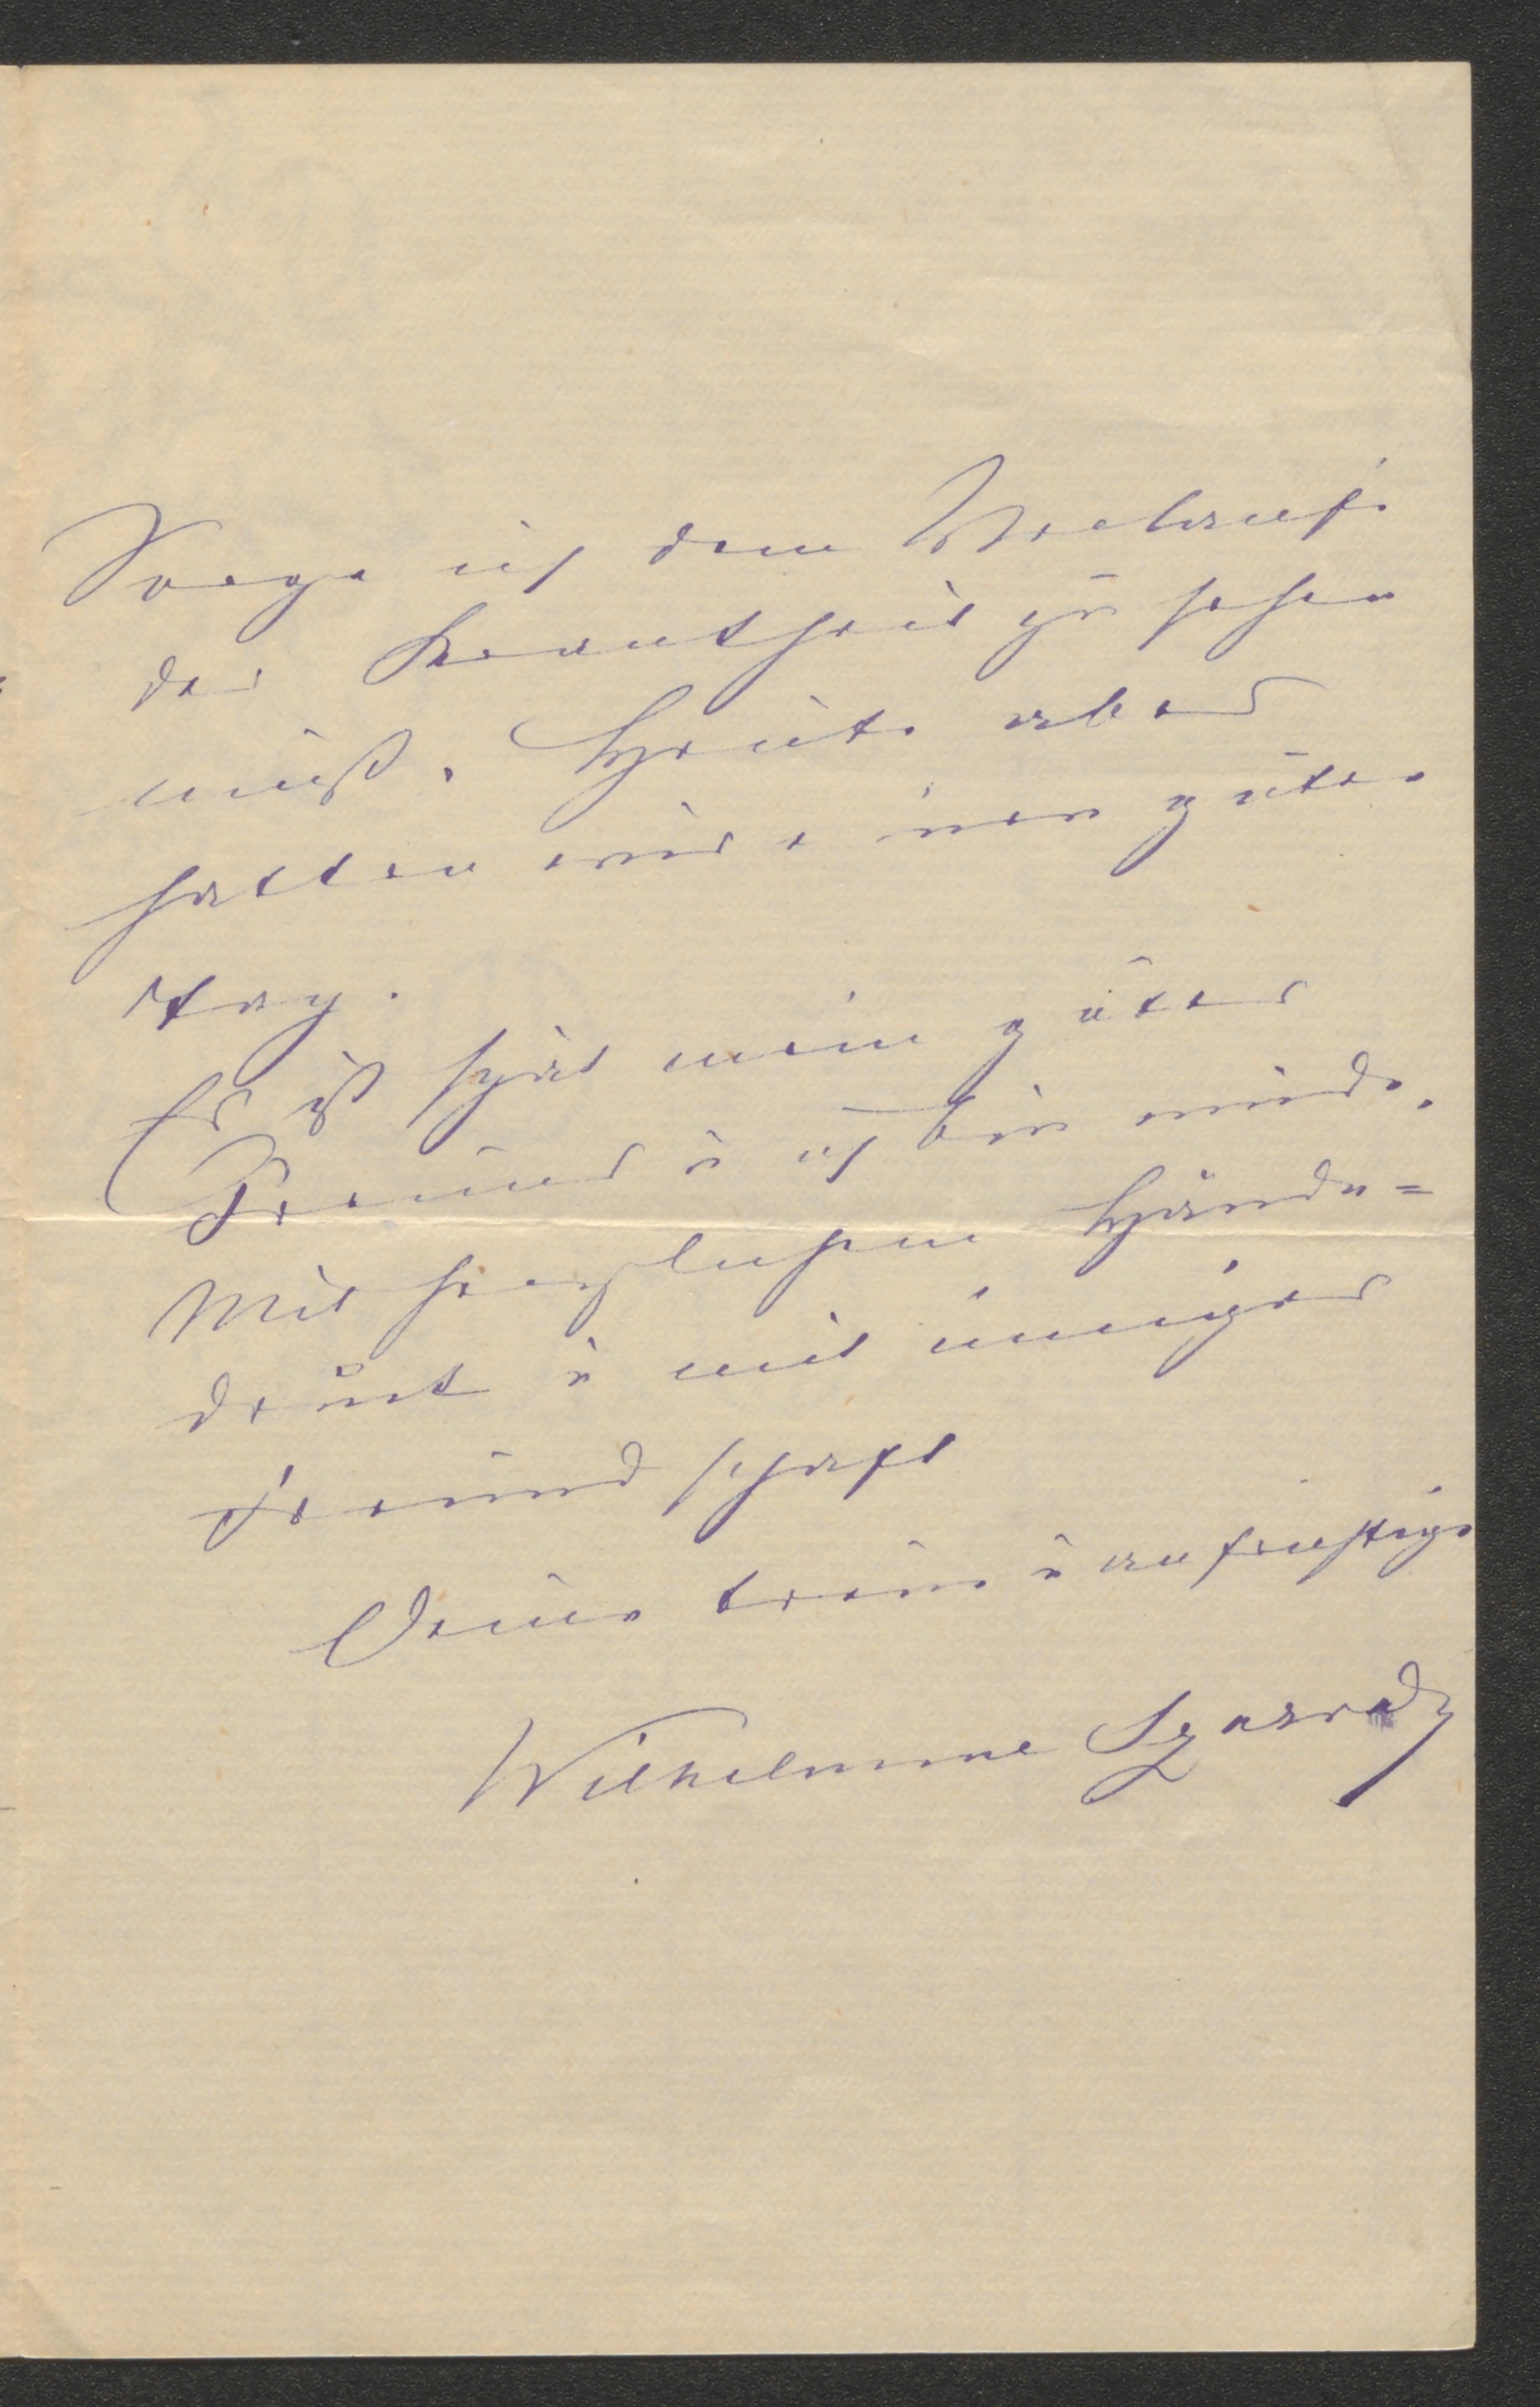 Sorge ich dem Verlaufe
der Krankheit zu sehen
muß. Heute aber
hatten wir einen guten
Tag.
Es ist spät mein guter
Freund u ich bin müde.
Mit herzlichem Hände-
druck u mit inniger
Freundschaft
Deine treue u aufrichtige
Wilhelmine Szarvady